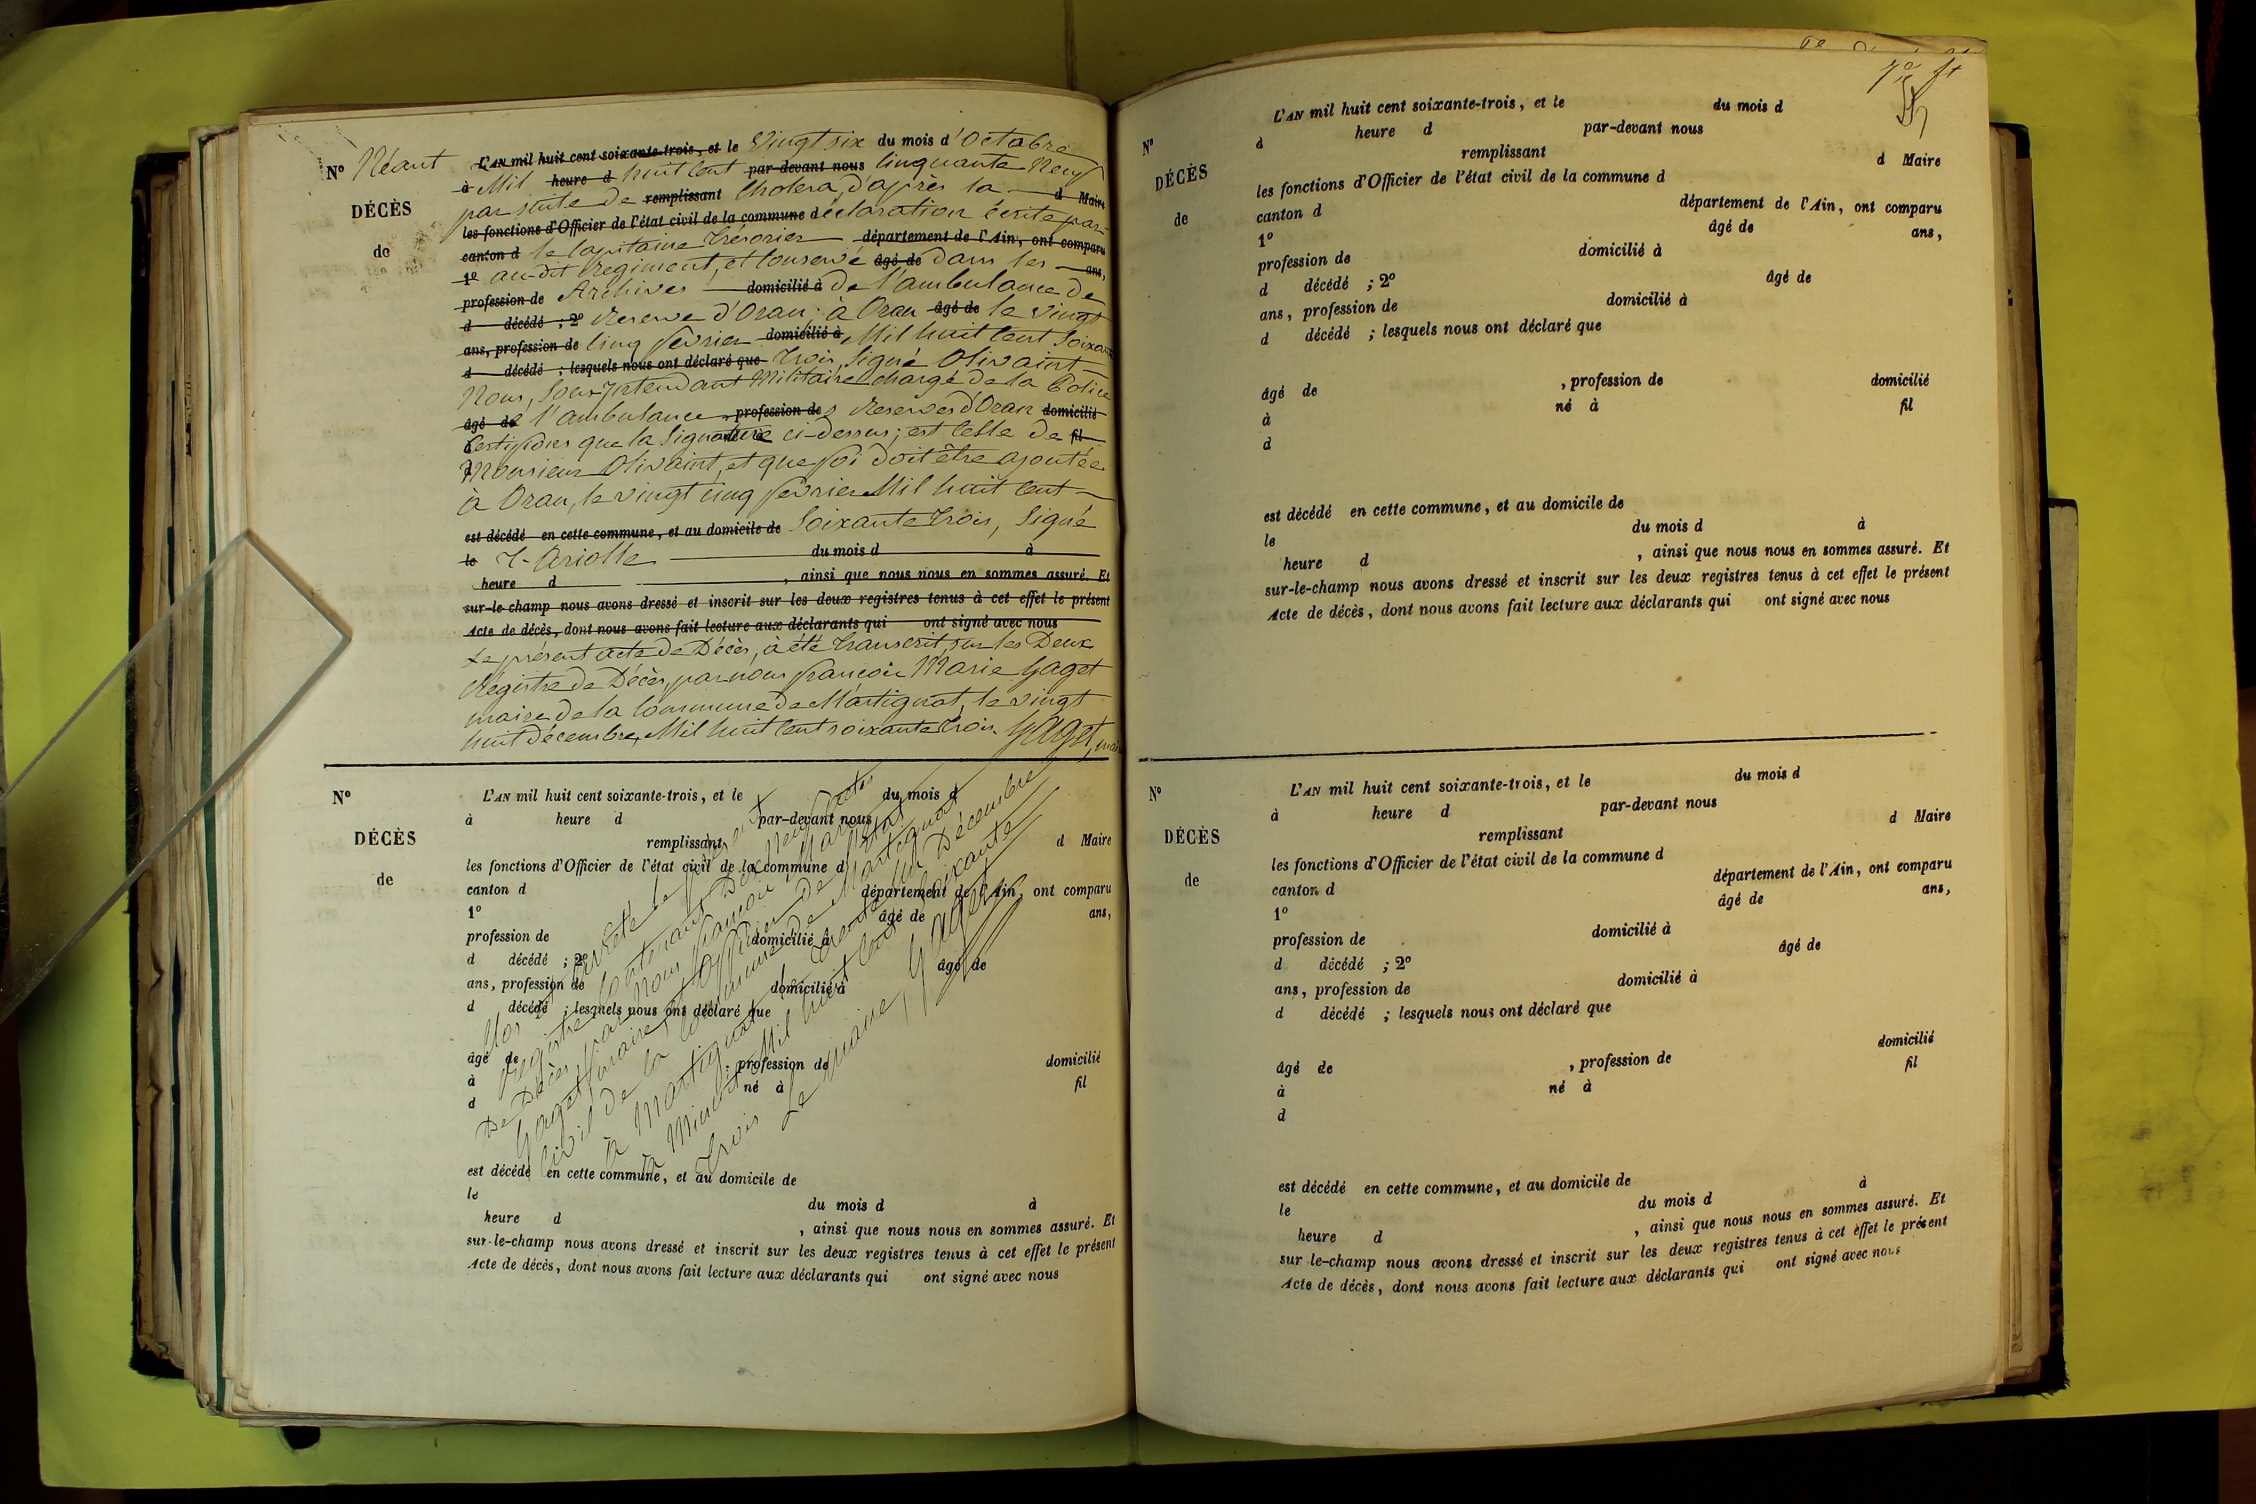 Nº Néant
DÉCÈS
de
L'AN mil huit cent soixante-trois, et le Vingt six du mois d'Octobre
à Mil heure d huit Cent par-devant nous Cinquante Neuf
par suite de remplissant Choléra, d'après la d Maire
les fonctions d'Officier de l'état civil de la commune déclaration écrite par
canton d le Capitaine trésorier département de l'Ain, ont comparu
1º au-dit Régiment, et Conservé âgé de dans les ans,
profession de Archives domicilié à de l'ambulance de
d décédé ; 2º Réserve d'Oran; à Oran âgé de le vingt
ans, profession de Cinq février domicilié à Mil huit Cent Soixante
d décédé ; lesquels nous ont déclaré que trois, Signé Olivaint
Nous, Sous-Intendant Militaire chargé de la Police
âgé de l'ambulance , profession de Réserves d'Oran domicilié
Certifions que la Signature ci-dessus, est Celle de fil
Monsieur Olivaint, et que foi doit être ajoutée
à Oran, le vingt Cinq février Mil huit Cent
est décédé en cette commune, et au domicile de Soixante trois, Signé
le du mois d à
heure d , ainsi que nous nous en sommes assuré. Et
sur-le-champ nous avons dressé et inscrit sur les deux registres tenus à cet effet le présent
Acte de décès, dont nous avons fait lecture aux déclarants qui ont signé avec nous
Le présent acte de Décès, à été transcrit, sur les Deux
Régistre de Décès, par nous françois Marie Gaget
maire de la Commune de Martignat, le vingt
huit décembre, Mil huit Cent soixante trois Gaget, maire
Nº
DÉCÈS
de
L'AN mil huit cent soixante-trois, et le du mois d
à heure d par-devant nous
remplissant d Maire
les fonctions d'Officier de l'état civil de la commune d
canton d département de l'Ain, ont comparu
1º âgé de ans,
profession de domicilié à
d décédé ; 2º âgé de
ans, profession de domicilié à
d décédé ; lesquels nous ont déclaré que
âgé de , profession de domicilié
à né à fil
d
est décédé en cette commune, et au domicile de
le du mois d à
heure d , ainsi que nous nous en sommes assuré. Et
sur-le-champ nous avons dressé et inscrit sur les deux registres tenus à cet effet le présent
Acte de décès, dont nous avons fait lecture aux déclarants qui ont signé avec nous
Clos et arrêté le présent
Régistre Contenant Dix Neuf actes
De Décès, par nous françois Marie
Gaget, maire et Officier de l'état
Civil de la Commune de Martignat
à Martignat le trente un Décembre
à Minuit Mil huit Cent Soixante
trois Le maire, Gaget
Nº
DÉCÈS
de
L'AN mil huit cent soixante-trois, et le du mois d
à heure d par-devant nous
remplissant d Maire
les fonctions d'Officier de l'état civil de la commune d
canton d département de l'Ain, ont comparu
1º âgé de ans,
profession de domicilié à
d décédé ; 2º âgé de
ans, profession de domicilié à
d décédé ; lesquels nous ont déclaré que
âgé de , profession de domicilié
à né à fil
d
est décédé en cette commune, et au domicile de
le du mois d à
heure d , ainsi que nous nous en sommes assuré. Et
sur-le-champ nous avons dressé et inscrit sur les deux registres tenus à cet effet le présent
Acte de décès, dont nous avons fait lecture aux déclarants qui ont signé avec nous
Nº
DÉCÈS
de
L'AN mil huit cent soixante-trois, et le du mois d
à heure d par-devant nous
remplissant d Maire
les fonctions d'Officier de l'état civil de la commune d
canton d département de l'Ain, ont comparu
1º âgé de ans,
profession de domicilié à
d décédé ; 2º âgé de
ans, profession de domicilié à
d décédé ; lesquels nous ont déclaré que
âgé de , profession de domicilié
à né à fil
d
est décédé en cette commune, et au domicile de
le du mois d à
heure d , ainsi que nous nous en sommes assuré. Et
sur le-champ nous avons dressé et inscrit sur les deux registres tenus à cet effet le présent
Acte de décès, dont nous avons fait lecture aux déclarants qui ont signé avec nous